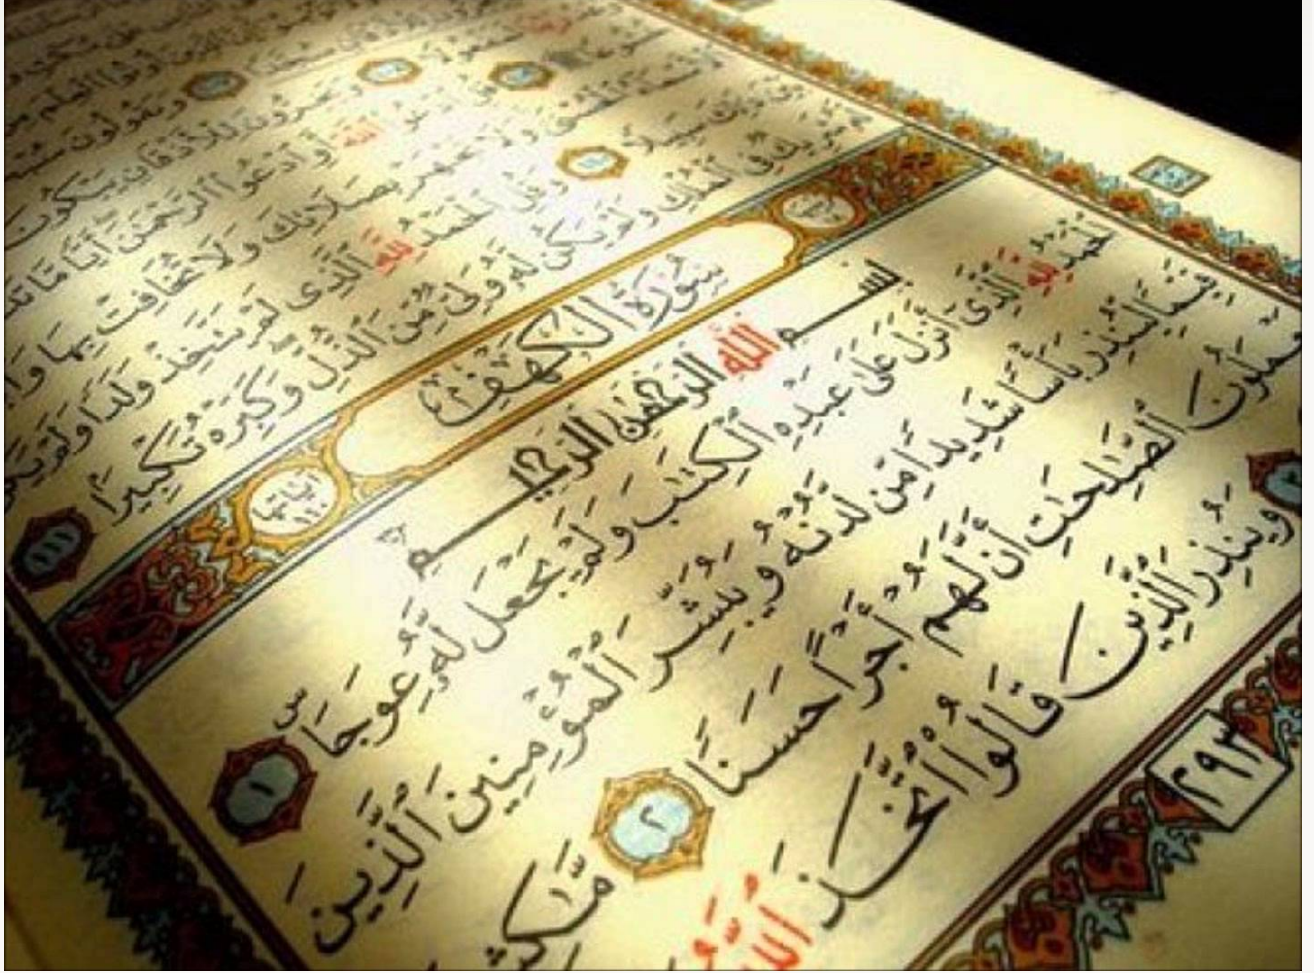 أُوتُوا۟ ٱلْعِلْمَ مِن
وَيَقُولُونَ
وَيَخِرُّونَ لِلْأَذْقَانِ يَبْكُونَ
ٱللَّهَ أَوِ ٱدْعُوا۟ ٱلرَّحْمَٰنَ أَيًّا مَّا
وَلَا تَجْهَرْ بِصَلَاتِكَ وَلَا تُخَافِتْ بِهَا
سَبِيلًا وَقُلِ ٱلْحَمْدُ لِلَّهِ ٱلَّذِى لَمْ يَتَّخِذْ وَلَدًا وَلَمْ يَكُن
شَرِيكٌ فِى ٱلْمُلْكِ وَلَمْ يَكُن لَّهُۥ وَلِىٌّ مِّنَ ٱلذُّلِّ وَكَبِّرْهُ تَكْبِيرًۢا ١١١
سُورَةُ الْكَهْفِ آيَاتُهَا ١١٠
بِسْمِ ٱللَّهِ ٱلرَّحْمَٰنِ ٱلرَّحِيمِ
ٱلْحَمْدُ لِلَّهِ ٱلَّذِىٓ أَنزَلَ عَلَىٰ عَبْدِهِ ٱلْكِتَٰبَ وَلَمْ يَجْعَل لَّهُۥ عِوَجَاۜ ١
قَيِّمًا لِّيُنذِرَ بَأْسًا شَدِيدًا مِّن لَّدُنْهُ وَيُبَشِّرَ ٱلْمُؤْمِنِينَ ٱلَّذِينَ
يَعْمَلُونَ ٱلصَّٰلِحَٰتِ أَنَّ لَهُمْ أَجْرًا حَسَنًا ٢ مَّٰكِثِ
٣ وَيُنذِرَ ٱلَّذِينَ قَالُوا۟ ٱتَّخَذَ ٱللَّهُ
٢٩٣